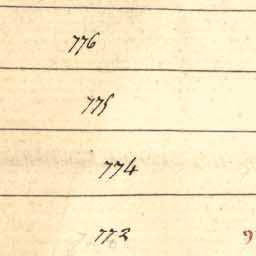 776
775
774
772